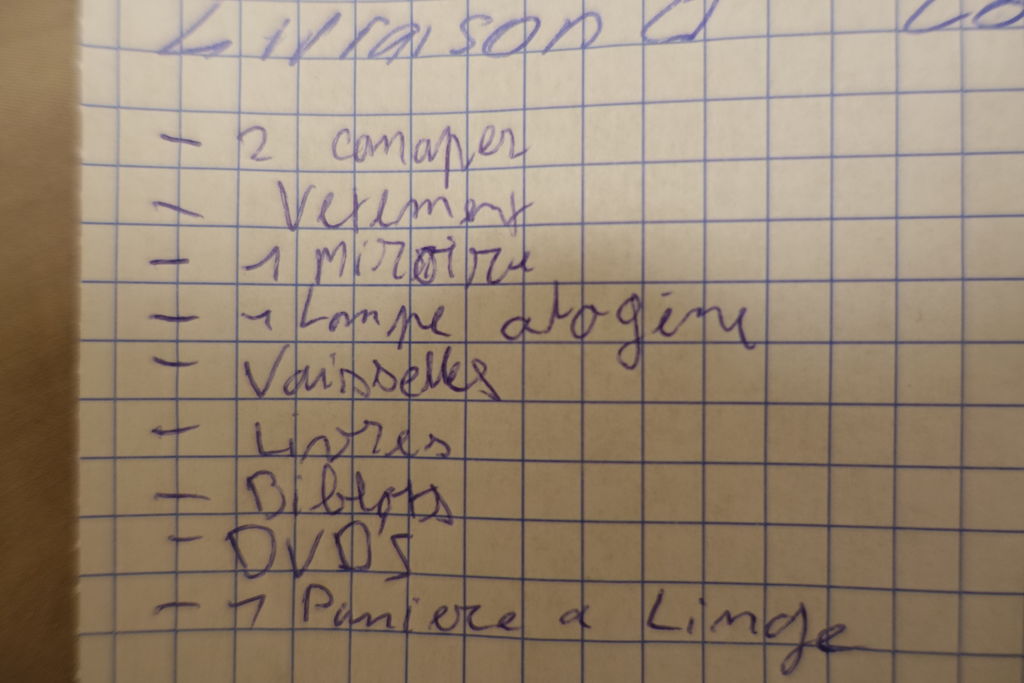 Livraison a
- 2 canaper
- Vetement
- 1 Miroire
- 1 Lampe alogène
- Vaisselles
- Livres
- Biblots
- DVD's
- 1 Paniere a Linge